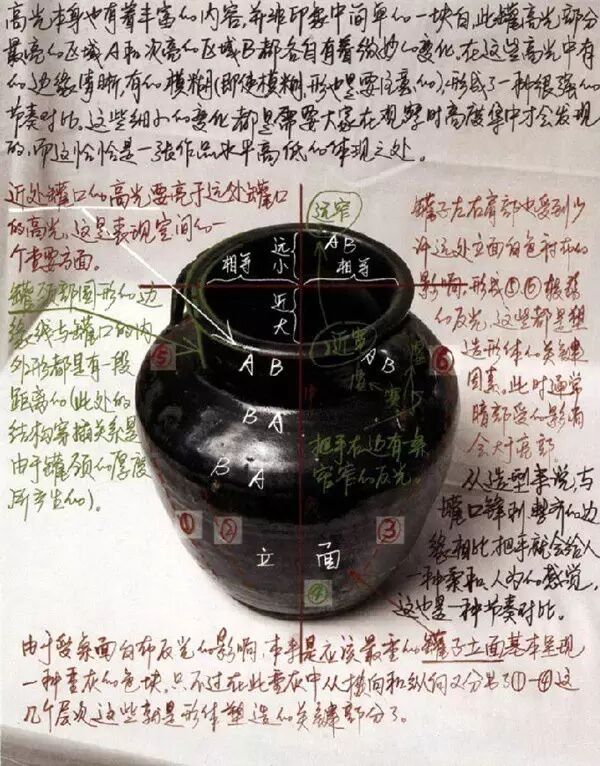 高光本身也有着丰富的内容,并非印象中简单的一块白,此罐高光部分
最亮的区域A和次亮的区域B都各自有着微妙的变化。在这些高光中有
的边缘清晰,有的模糊(即使模糊,形也是要注意的),形成了一种很强的
节奏对比。这些细小的变化都是需要大家在观察时高度集中才会发现
的,而这恰恰是一张作品水平高低的体现之处。
近处罐口的高光要亮于远处罐口
的高光,这是表现空间的一
个重要方面。
罐颈部圆形的边
缘线与罐口的内
外形都是有一段
距离的(此处的
结构穿插关系是
由于罐颈的厚度
所产生的)。
远窄
AB
相等
远小
相等
近大
近宽
AB
AB
虚
实
中
BA
BA
把手在边有条
窄窄的反光。
⑤
⑥
①
②
③
立面
④
罐子左右肩部也受到少
许远处立面白色衬布的
影响,形成⑤⑥板块
的反光,这些都是塑
造形体的关键
因素。此时通常
暗部受的影响
会大于亮部。
从造型来说,与
罐口锋利整齐的边
缘相比,把手就会给人
一种柔和、人为的感觉,
这也是一种节奏对比。
由于受桌面白布反光的影响,本来是应该最重的罐子立面基本呈现
一种重灰的色块,只不过在此重灰中从横向和纵向又分出了①—④这
几个层次,这些就是形体塑造的关键部分了。